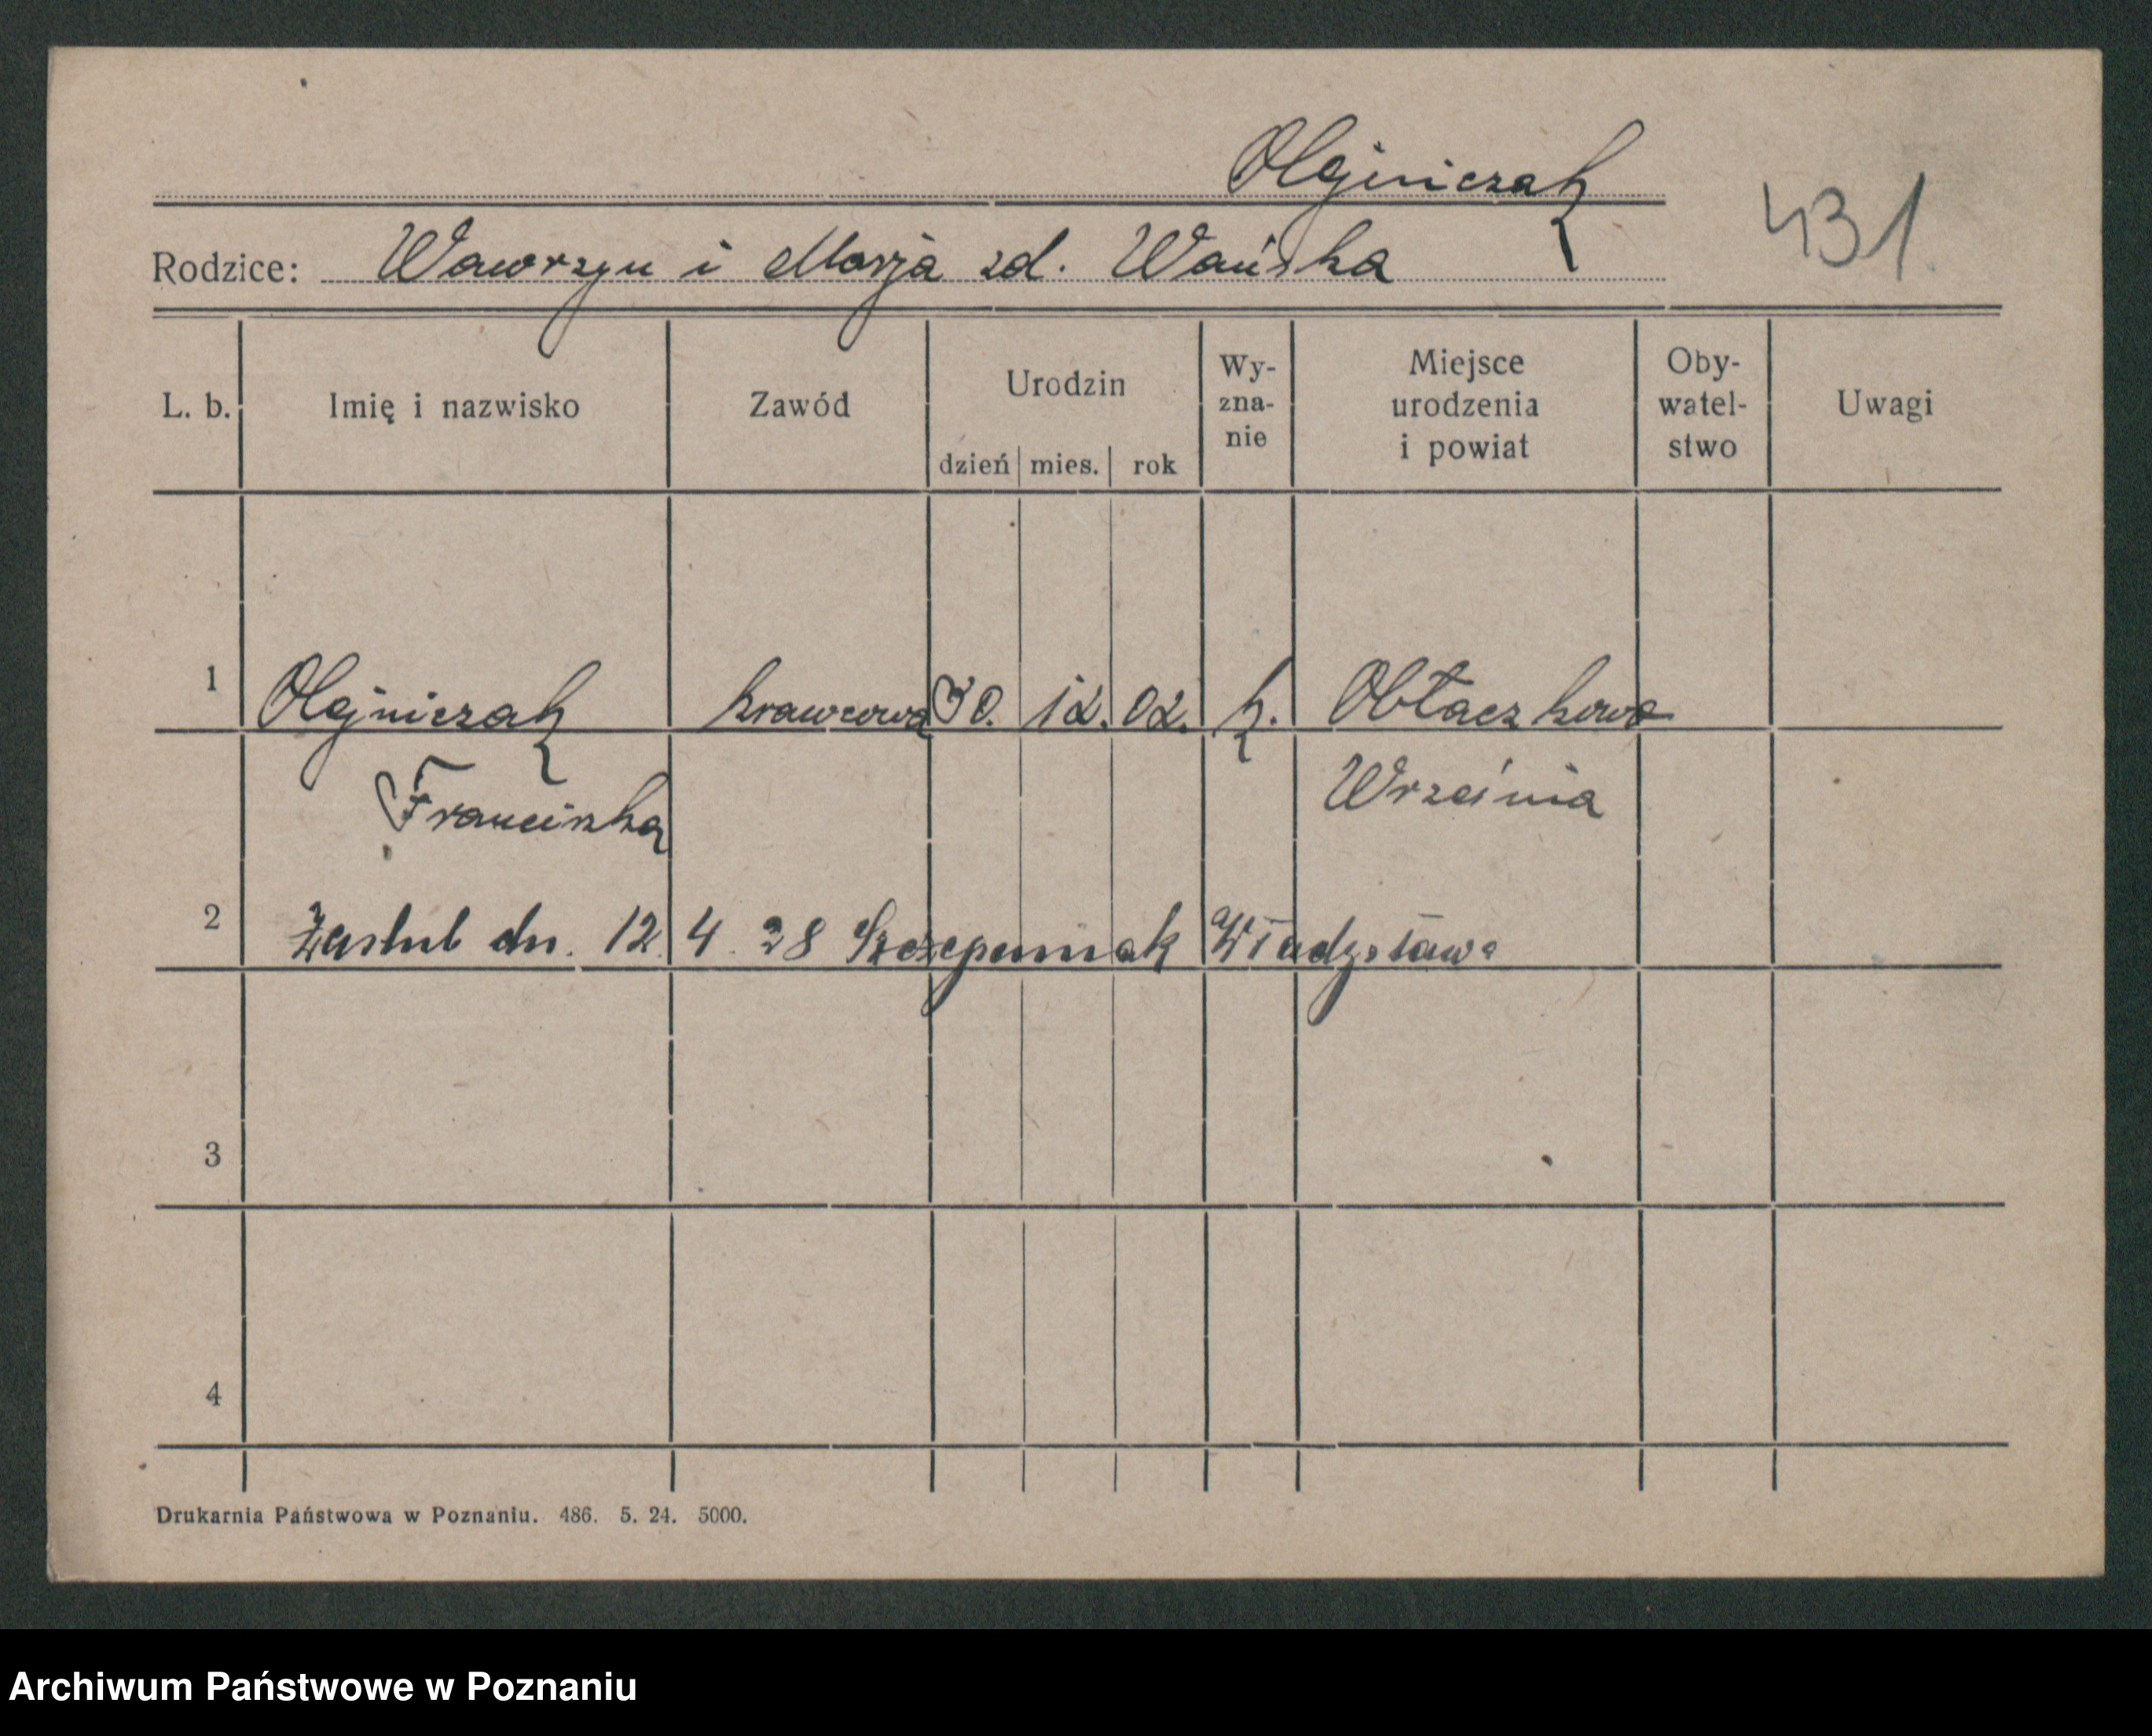 Olejniczak
431
Rodzice: Wawrzyn i Marja zd. Wańska
L. b. Imię i nazwisko Zawód Urodzin dzień mies. rok Wy-zna-nie Miejsce urodzenia i powiat Oby-watel-stwo Uwagi
1 Olejniczak krawcowa 30. 12. 02. k. Obłaczkowo
Franciszka Września
2 Zaślub dn. 12. 4. 28 Szczepaniak Władysława
3
4
Drukarnia Państwowa w Poznaniu. 486. 5. 24. 5000.
Archiwum Państwowe w Poznaniu